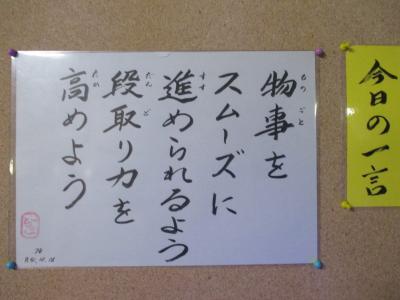 今日の一言
物事を
スムーズに
進められるよう
段取り力を
高めよう
もの ごと
すす
だん ど
たか